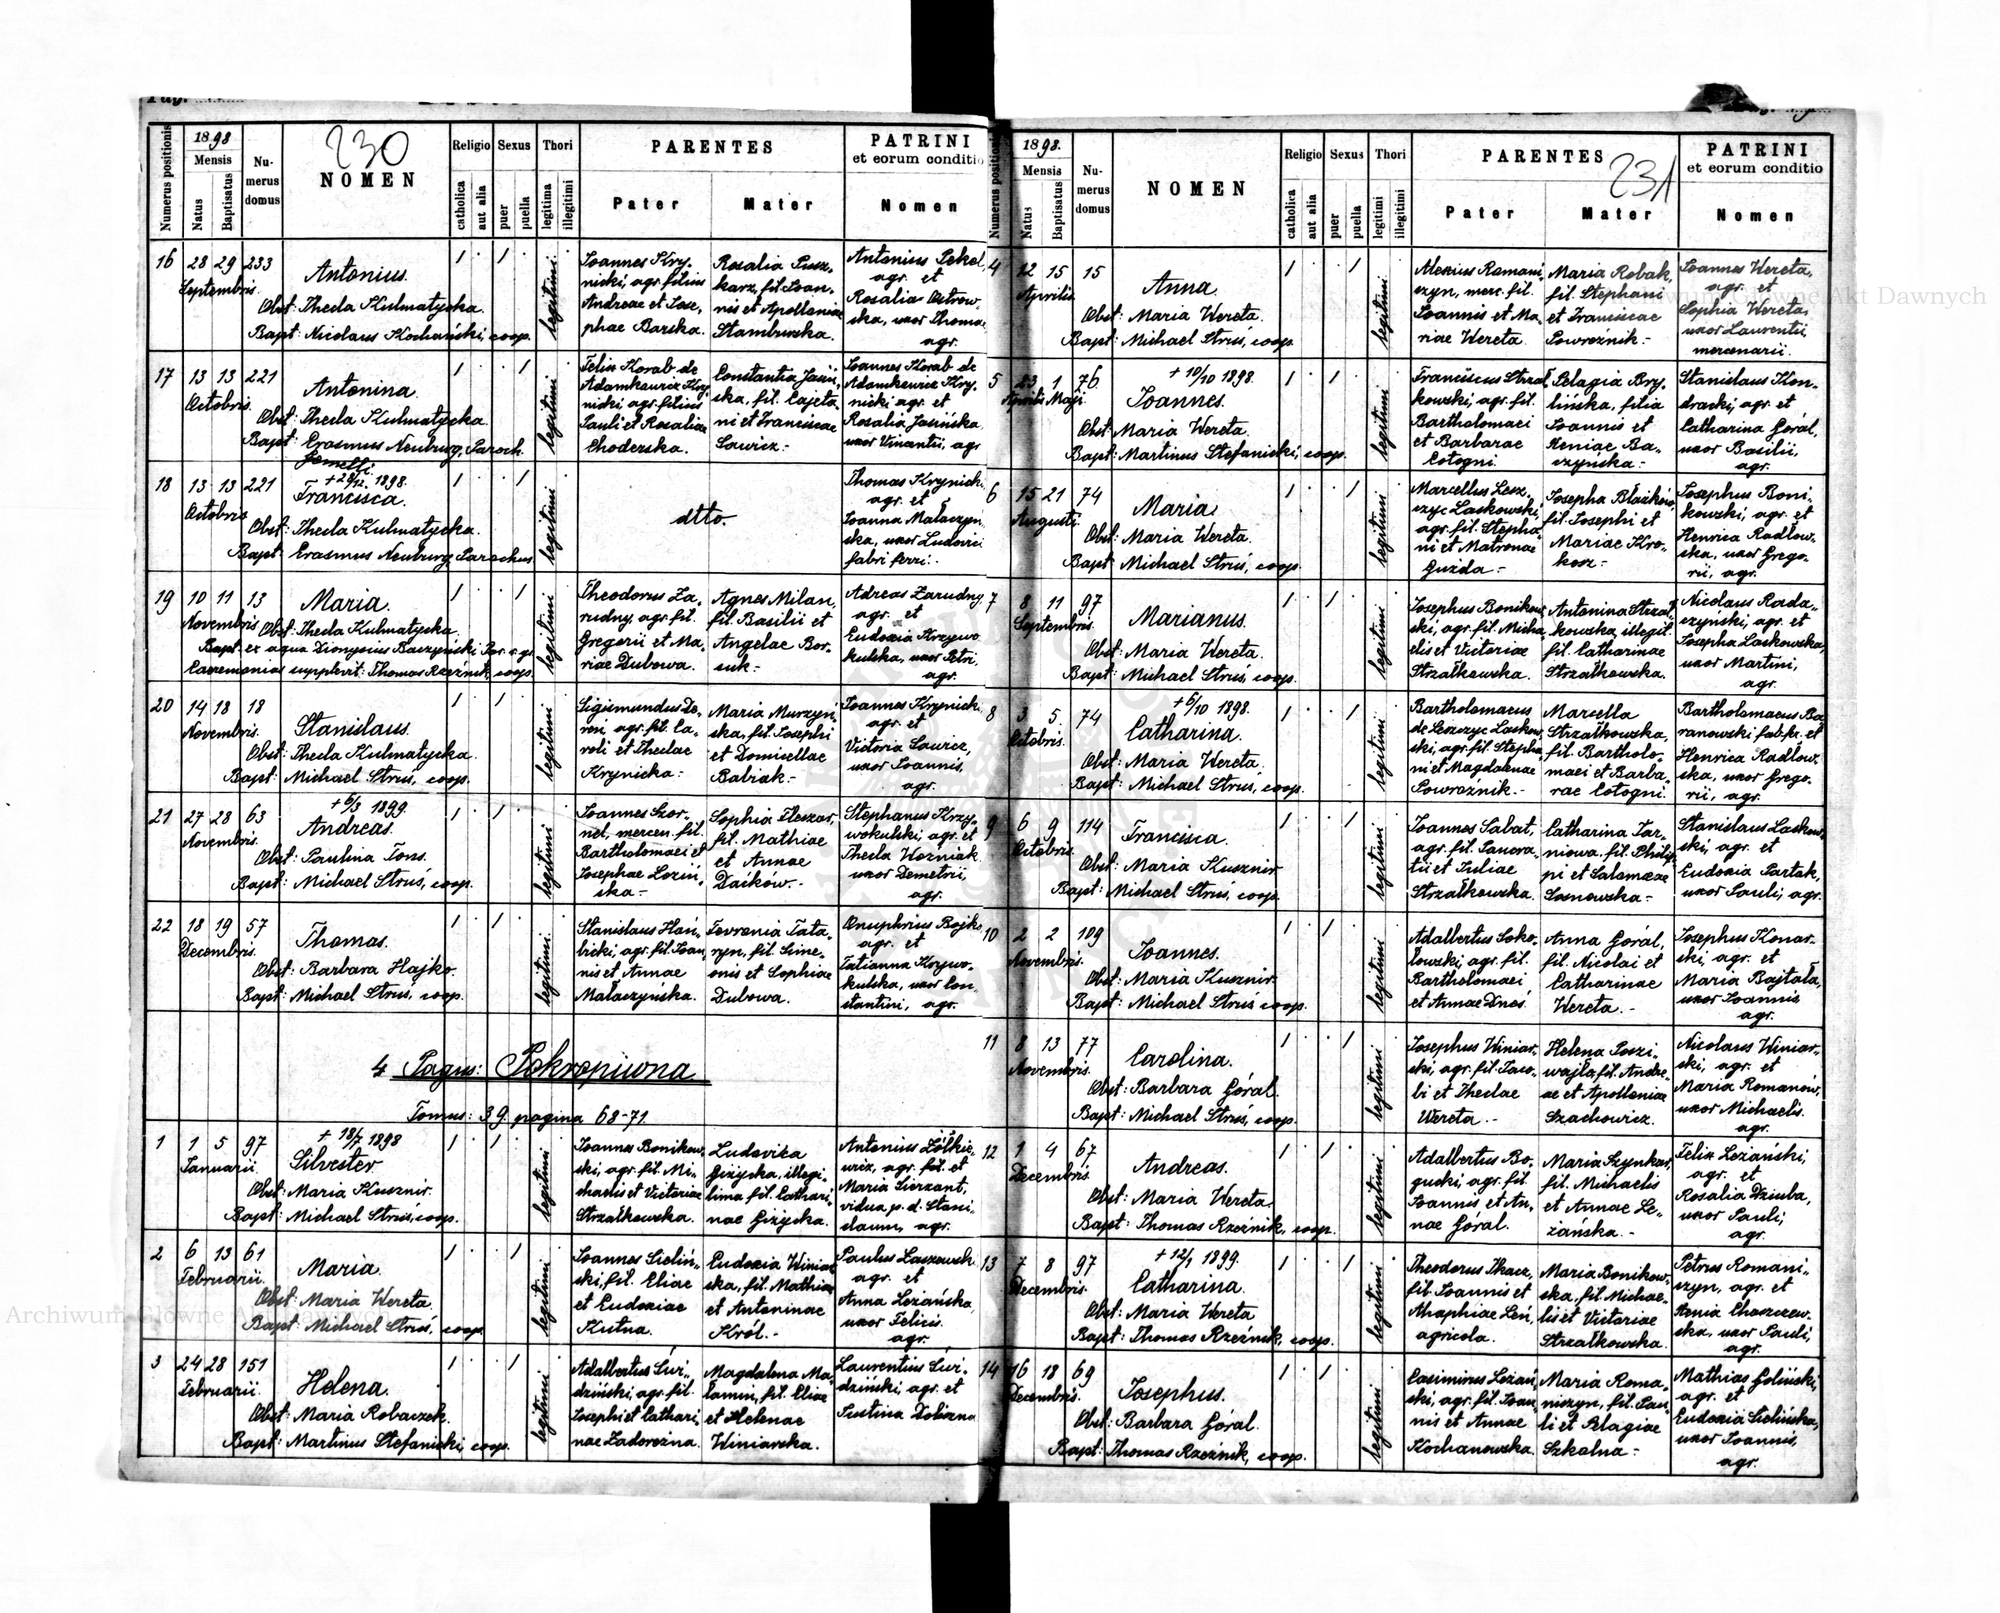 1898
230
Numerus positionis
Mensis
Natus
Baptisatus
Nu-
merus
domus
NOMEN
Religio
catholica
aut alia
Sexus
puer
puella
Thori
legitima
illegitimi
PARENTES
Pater
Mater
PATRINI
et eorum conditio
Nomen
16 28 29 233
Septembris
Antonius.
Obst: Thecla Kulmatycka.
Bapt: Nicolaus Kochański, coop.
legitimi
Joannes Kry-
nicki, agr. filius
Andreae et Jose-
phae Barska.
Rosalia Pusz-
karz, fil. Joan-
nis et Apolloniae
Stambuska.
Antonius Pekel,
agr. et
Rosalia Ostrow-
ska, uxor Thomae
agr.
17 13 13 221
Octobris
Antonina.
Obst: Thecla Kulmatycka.
Bapt: Erasmus Neuburg, Paroch.
Gemelli.
legitimi
Felix Korab de
Adamkewicz Kry-
nicki, agr. filius
Pauli et Rosaliae
Choderska.
Constantia Jasiń-
ska, fil. Cajeta-
ni et Franciscae
Sawicz.-
Joannes Korab de
Adamkewicz Kry-
nicki agr. et
Rosalia Jasińska
uxor Vinantii, agr.
18 13 13 221
Octobris
1898.
Francisca.
Obst: Thecla Kulmatycka.
Bapt: Erasmus Neuburg, Parochus.
legitimi
dtto.
Thomas Krynicki
agr. et
Joanna Małaczyń-
ska, uxor Ludovici
fabri ferri.-
19 10 11 13
Novembris
Maria.
Obst: Thecla Kulmatycka.
Bapt: ex aqua Dionysius Baczyński Par. r. gr.
Caeremonias supplevit: Thomas Rzeźnik, coop.
legitimi
Theodorus Za-
rudny agr. fil.
Gregorii et Ma-
riae Dubowa.
Agnes Milan,
fil. Basilii et
Angelae Bor-
suk.-
Adreas Zarudny
agr. et
Eudoxia Krzywo-
kulska, uxor Petri,
agr.
20 14 18 18
Novembris
Stanislaus.
Obst: Thecla Kulmatycka.
Bapt: Michael Struś, coop.
legitimi
Sigismundus De-
agr. fil. Ca-
roli et Theclae
Krynicka.-
Maria Murzyń-
ska, fil. Josephi
et Domicellae
Babiak.-
Joannes Krynicki
agr. et
Victoria Sawicz,
uxor Joannis,
agr.
21 27 28 63
Novembris
+ 6/3 1899
Andreas.
Obst: Paulina Tons.
Bapt: Michael Struś, coop.
legitimi
Joannes Szor-
nel, mercen. fil.
Bartholomaei et
Josephae Lozin-
ska.-
Sophia Fleszar,
fil. Mathiae
et Annae
Daików.-
Stephanus Krzy-
wokulski, agr. et
Thecla Woźniak
uxor Demetrii
agr.
22 18 19 57
Decembris
Thomas.
Obst: Barbara Hajko.
Bapt: Michael Struś, coop.
legitimi
Stanislaus Hań-
bicki, agr. fil. Joan-
nis et Annae
Małaczyńska.
Fevronia Tata-
ryn, fil. Sime-
onis et Sophiae
Dubowa.
Onuphrius Bojko,
agr. et
Tatianna Krzywo-
kulska, uxor Con-
stantini, agr.
4 Pagus: Pokropiwna
Tomus: 39. pagina 68-71.
1 1 5 97
Januarii
+ 18/7 1898
Silvester
Obst: Maria Kusznir.
Bapt: Michael Struś, coop.
legitimi
Joannes Bonikow-
ski, agr. fil. Mi-
chaelis et Victoriae
Strzałkowska.
Ludovica
Giżycka, illegi-
tima fil. Cathari-
nae Giżycka.
Antonius Żółkie-
wicz, agr. fil. et
Maria Sierzant,
vidua p. d. Stani-
slaum, agr.
2 6 13 61
Februarii
Maria.
Obst: Maria Wereta.
Bapt: Michael Struś, coop.
legitimi
Joannes Sieliń-
ski, fil. Eliae
et Eudoxiae
Kutna.
Eudoxia Winiar-
ska, fil. Mathiae
et Antoninae
Król.-
Paulus Laszewski
agr. et
Anna Leżańska,
uxor Felicis
agr.
3 24 28 151
Februarii
Helena.
Obst: Maria Robaczek.
Bapt: Martinus Stefanicki, coop.
legitimi
Adalbertus Świ-
dziński, agr. fil.
Josephi et Cathari-
nae Zadorożna.
Magdalena Ma-
lamin, fil. Eliae
et Helenae
Winiarska.
Laurentius Świ-
dziński, agr. et
Justina
1898.
231
Numerus positionis
Mensis
Natus
Baptisatus
Nu-
merus
domus
NOMEN
Religio
catholica
aut alia
Sexus
puer
puella
Thori
legitimi
illegitimi
PARENTES
Pater
Mater
PATRINI
et eorum conditio
Nomen
4 12 15 15
Aprilis
Anna.
Obst: Maria Wereta.
Bapt: Michael Struś, coop.
legitimi
Alexius Romani-
szyn, merc. fil.
Joannis et Ma-
riae Wereta.
Maria Robak,
fil. Stephani
et Franciscae
Powroźnik.-
Joannes Wereta,
agr. et
Sophia Wereta,
uxor Laurentii,
mercenarii.
5 23 1 76.
Aprilis Maji
+ 10/10 1898.
Joannes.
Obst: Maria Wereta.
Bapt: Martinus Stefanicki, coop.
legitimi
Franciscus Strzał-
kowski, agr. fil.
Bartholomaei
et Barbarae
Cotogni.
Pelagia Bry-
lińska, filia
Joannis et
Xeniae Ba-
czyńska.-
Stanislaus Kon-
dracki, agr. et
Catharina Góral,
uxor Basilii,
agr.
6 15 21 74
Augusti
Maria.
Obst: Maria Wereta.
Bapt: Michael Struś, coop.
legitimi
Marcellus Lesz-
czyc Laskowski,
agr. fil. Stepha-
ni et Matronae
Guzda.-
Josepha Błażków,
fil. Josephi et
Mariae Kro-
kosz.-
Josephus Boni-
kowski, agr. et
Henrica Radłow-
ska, uxor Grego-
rii, agr.
7 8 11 97
Septembris
Marianus.
Obst: Maria Wereta.
Bapt: Michael Struś, coop.
legitimi
Josephus Bonikow-
ski, agr. fil. Micha-
elis et Victoriae
Strzałkowska.
Antonina Strzał-
kowska, illegit.
fil. Catharinae
Strzałkowska.
Nicolaus Rada-
czyński, agr. et
Josepha Laskowska,
uxor Martini,
agr.
8 3 5. 74
Octobris.
+ 6/10 1898.
Catharina.
Obst: Maria Wereta.
Bapt: Michael Struś, coop.
legitimi
Bartholomaeus
de Leszczyc Laskow-
ski, agr. fil. Stepha-
ni et Magdalenae
Powroźnik.-
Marcella
Strzałkowska,
fil. Bartholo-
maei et Barba-
rae Cotogni.
Bartholomaeus Ba-
ranowski fab. fer. et
Henrica Radłow-
ska, uxor Grego-
rii, agr.
9 6 9 114
Octobris.
Francisca.
Obst: Maria Kusznir.
Bapt: Michael Struś, coop.
legitimi
Joannes Sabat,
agr. fil. Pancra-
tii et Juliae
Strzałkowska.
Catharina Tar-
niowa, fil. Philip-
pi et Salomeae
Sosnowska.-
Stanislaus Laskow-
ski, agr. et
Eudoxia Partak,
uxor Pauli, agr.
10 2 2 109
Novembris.
Joannes.
Obst: Maria Kusznir.
Bapt: Michael Struś coop.
legitimi
Adalbertus Soko-
łowski, agr. fil.
Bartholomaei
et Annae Dnes.
Anna Góral,
fil. Nicolai et
Catharinae
Wereta.-
Josephus Konar-
ski, agr. et
Maria Bajtała,
uxor Joannis
agr.
11 8 13 77
Novembris.
Carolina.
Obst: Barbara Góral.
Bapt: Michael Struś, coop.
legitimi
Josephus Winiar-
ski, agr. fil. Jaco-
bi et Theclae
Wereta.-
Helena Poszi-
wajła, fil. Andre-
ae et Apolloniae
Szachowicz.
Nicolaus Winiar-
ski, agr. et
Maria Romanów,
uxor Michaelis.
agr.
12 1 4 67
Decembris
Andreas.
Obst: Maria Wereta.
Bapt: Thomas Rzeźnik, coop.
legitimi
Adalbertus Bo-
gucki, agr. fil.
Joannis et An-
nae Góral.
Maria Szynkar,
fil. Michaelis
et Annae Le-
żańska.-
Felix Leżański,
agr. et
Rosalia Dziuba,
uxor Pauli,
agr.
13 7 8 97
Decembris
+ 12/1 1899.
Catharina.
Obst: Maria Wereta
Bapt: Thomas Rzeźnik, coop.
legitimi
Theodorus Tkacz,
fil. Joannis et
Ahaphiae Leń,
agricola.
Maria Bonikow-
ska, fil. Michae-
lis et Victoriae
Strzałkowska.
Petrus Romani-
szyn, agr. et
Xenia Chorzew-
ska, uxor Pauli,
agr.
14 16 18 69
Decembris
Josephus.
Obst: Barbara Góral.
Bapt: Thomas Rzeźnik, coop.
legitimi
Casimirus Leżań-
ski, agr. fil. Joan-
nis et Annae
Kochanowska.
Maria Roma-
niszyn, fil. Pau-
li et Pelagiae
Szkolna.-
Mathias Goliński,
agr. et
Eudoxia Sielińska,
uxor Joannis,
agr.
Archiwum Główne Akt Dawnych
Archiwum Główne Akt Dawnych